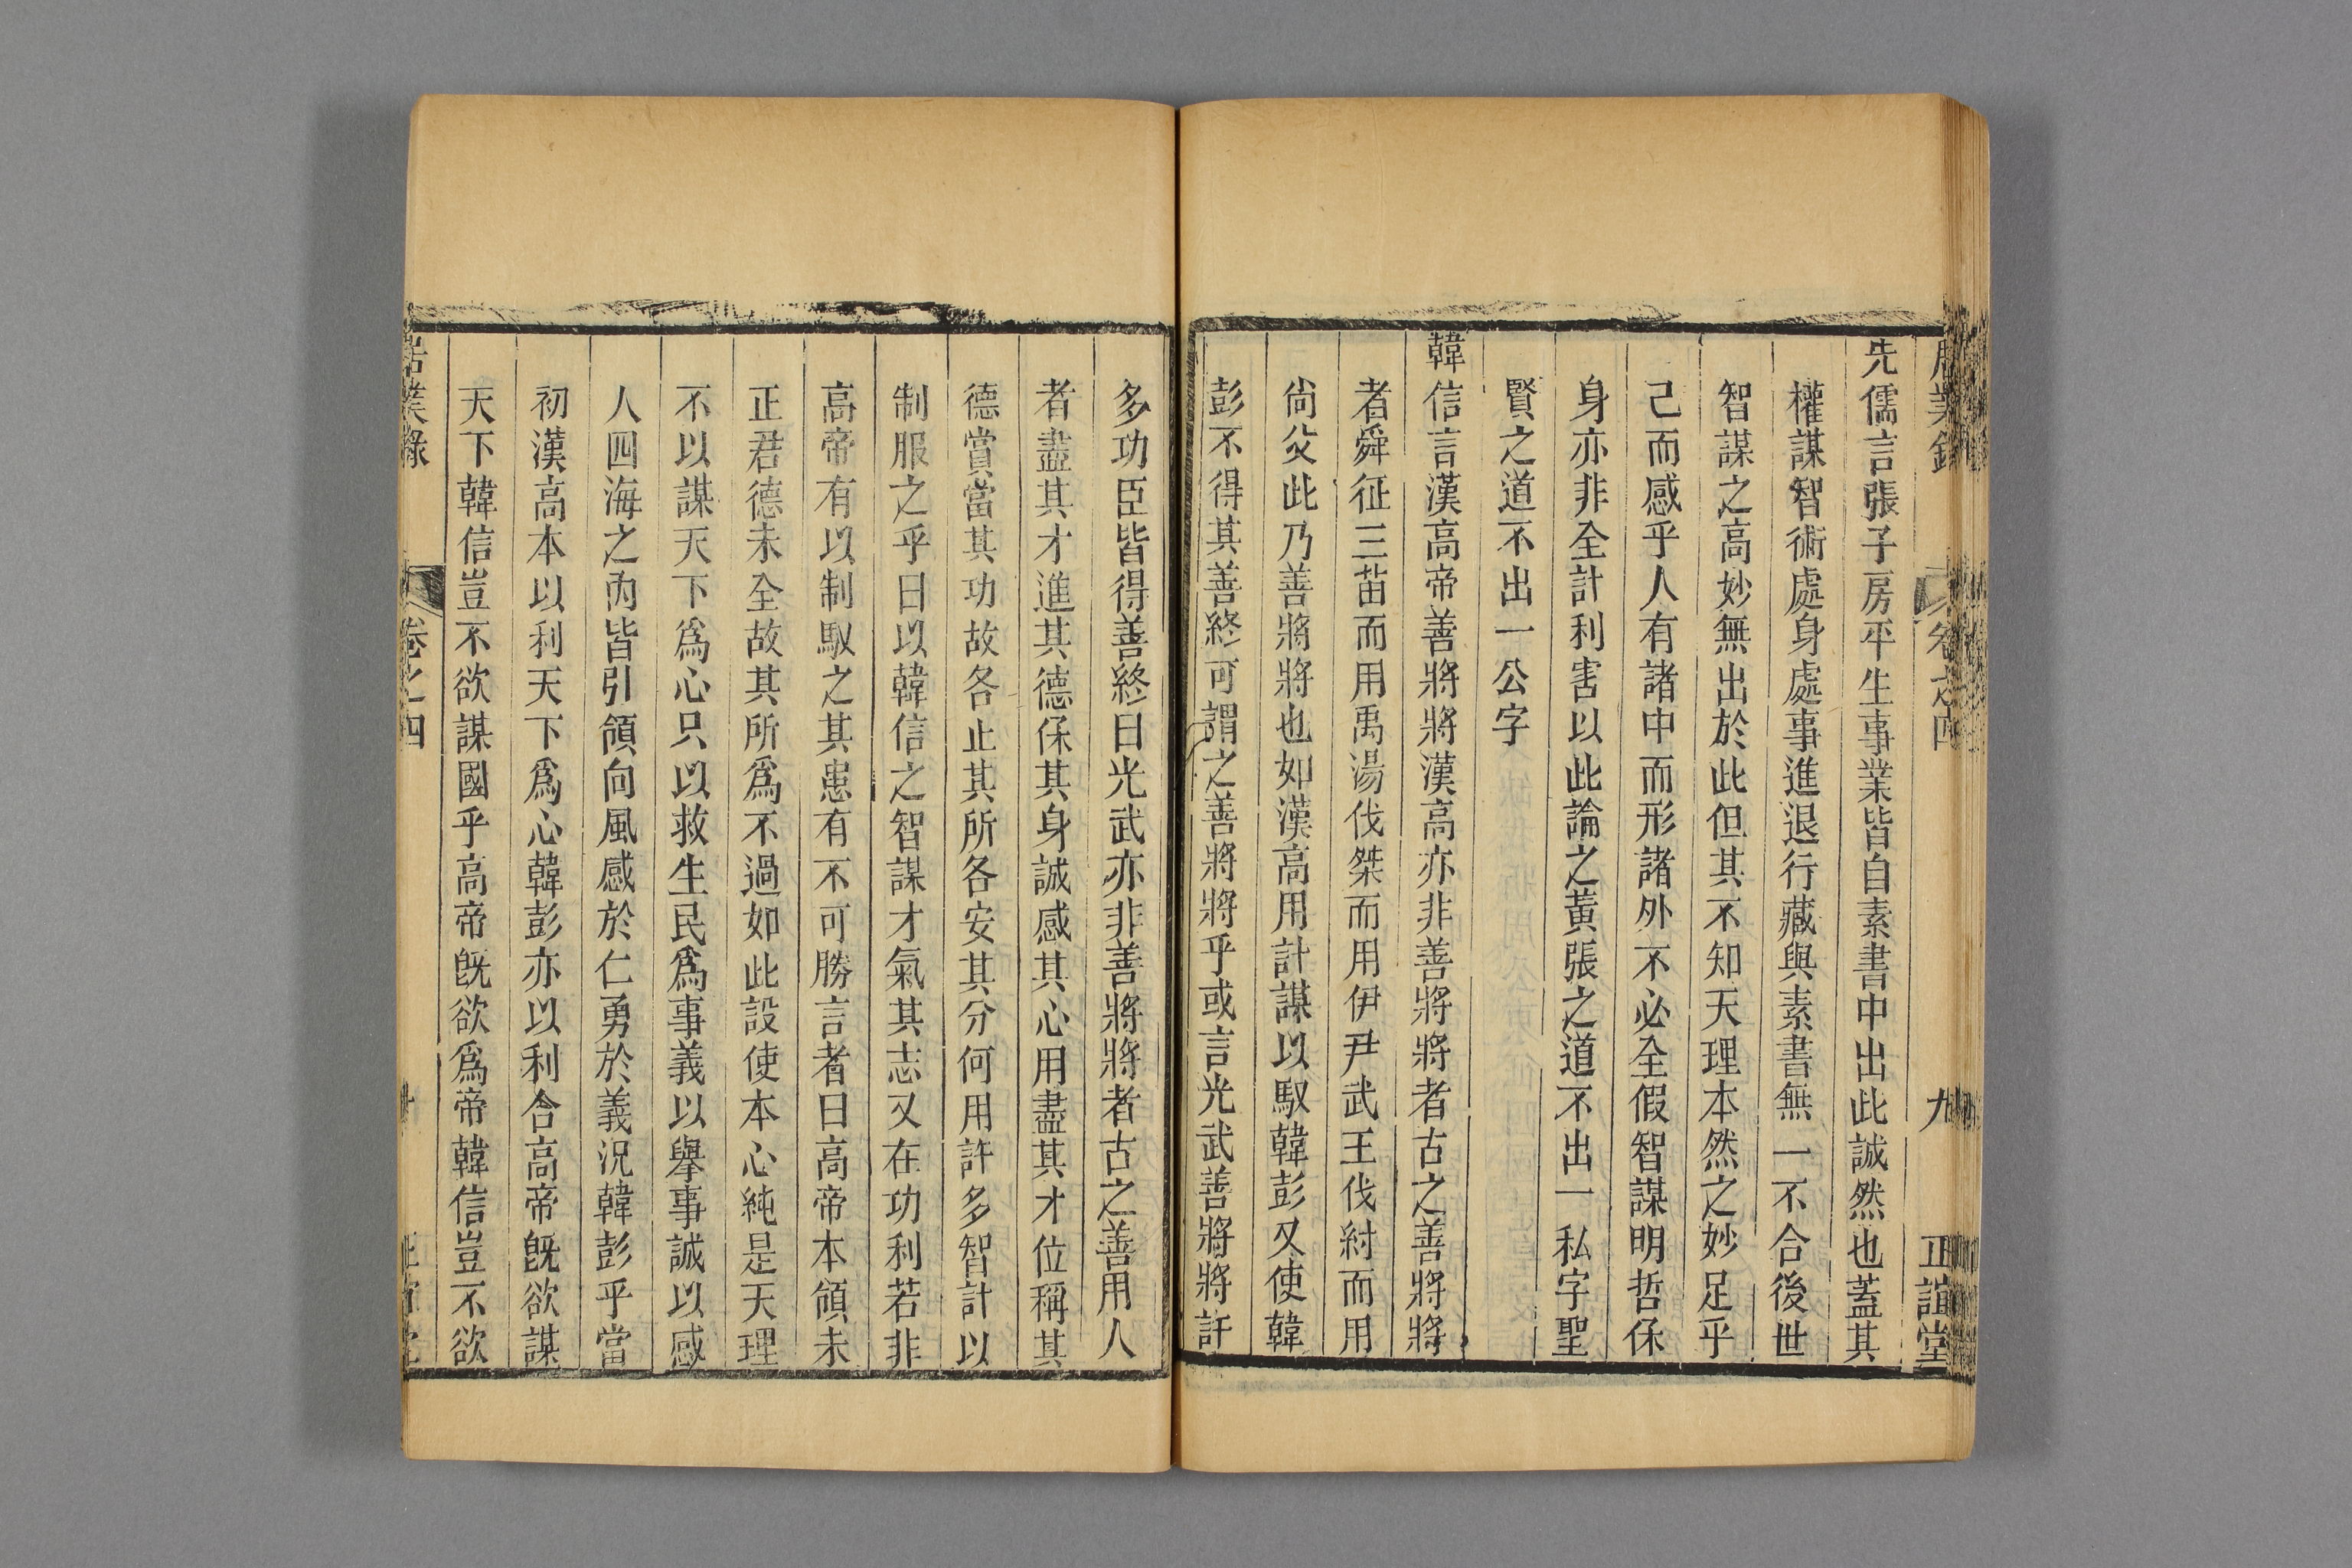 居業錄 卷之四 九 正誼堂
先儒言張子房平生事業皆自素書中出此誠然也蓋其
權謀智術處身處事進退行藏與素書無一不合後世
智謀之高妙無出於此但其不知天理本然之妙足乎
己而感乎人有諸中而形諸外不必全假智謀明哲保
身亦非全計利害以此論之黃張之道不出一私字聖
賢之道不出一公字
韓信言漢高帝善將將漢高亦非善將將者古之善將將
者舜征三苗而用禹湯伐桀而用伊尹武王伐紂而用
尙父此乃善將將也如漢高用計謀以馭韓彭又使韓
彭不得其善終可謂之善將將乎或言光武善將將許
多功臣皆得善終曰光武亦非善將將者古之善用人
者盡其才進其德保其身誠感其心用盡其才位稱其
德賞當其功故各止其所各安其分何用許多智計以
制服之乎曰以韓信之智謀才氣其志又在功利若非
高帝有以制馭之其患有不可勝言者曰高帝本領未
正君德未全故其所爲不過如此設使本心純是天理
不以謀天下爲心只以救生民爲事義以舉事誠以感
人四海之內皆引領向風感於仁勇於義況韓彭乎當
初漢高本以利天下爲心韓彭亦以利合高帝旣欲謀
天下韓信豈不欲謀國乎高帝旣欲爲帝韓信豈不欲
居業錄 卷之四 十 正誼堂